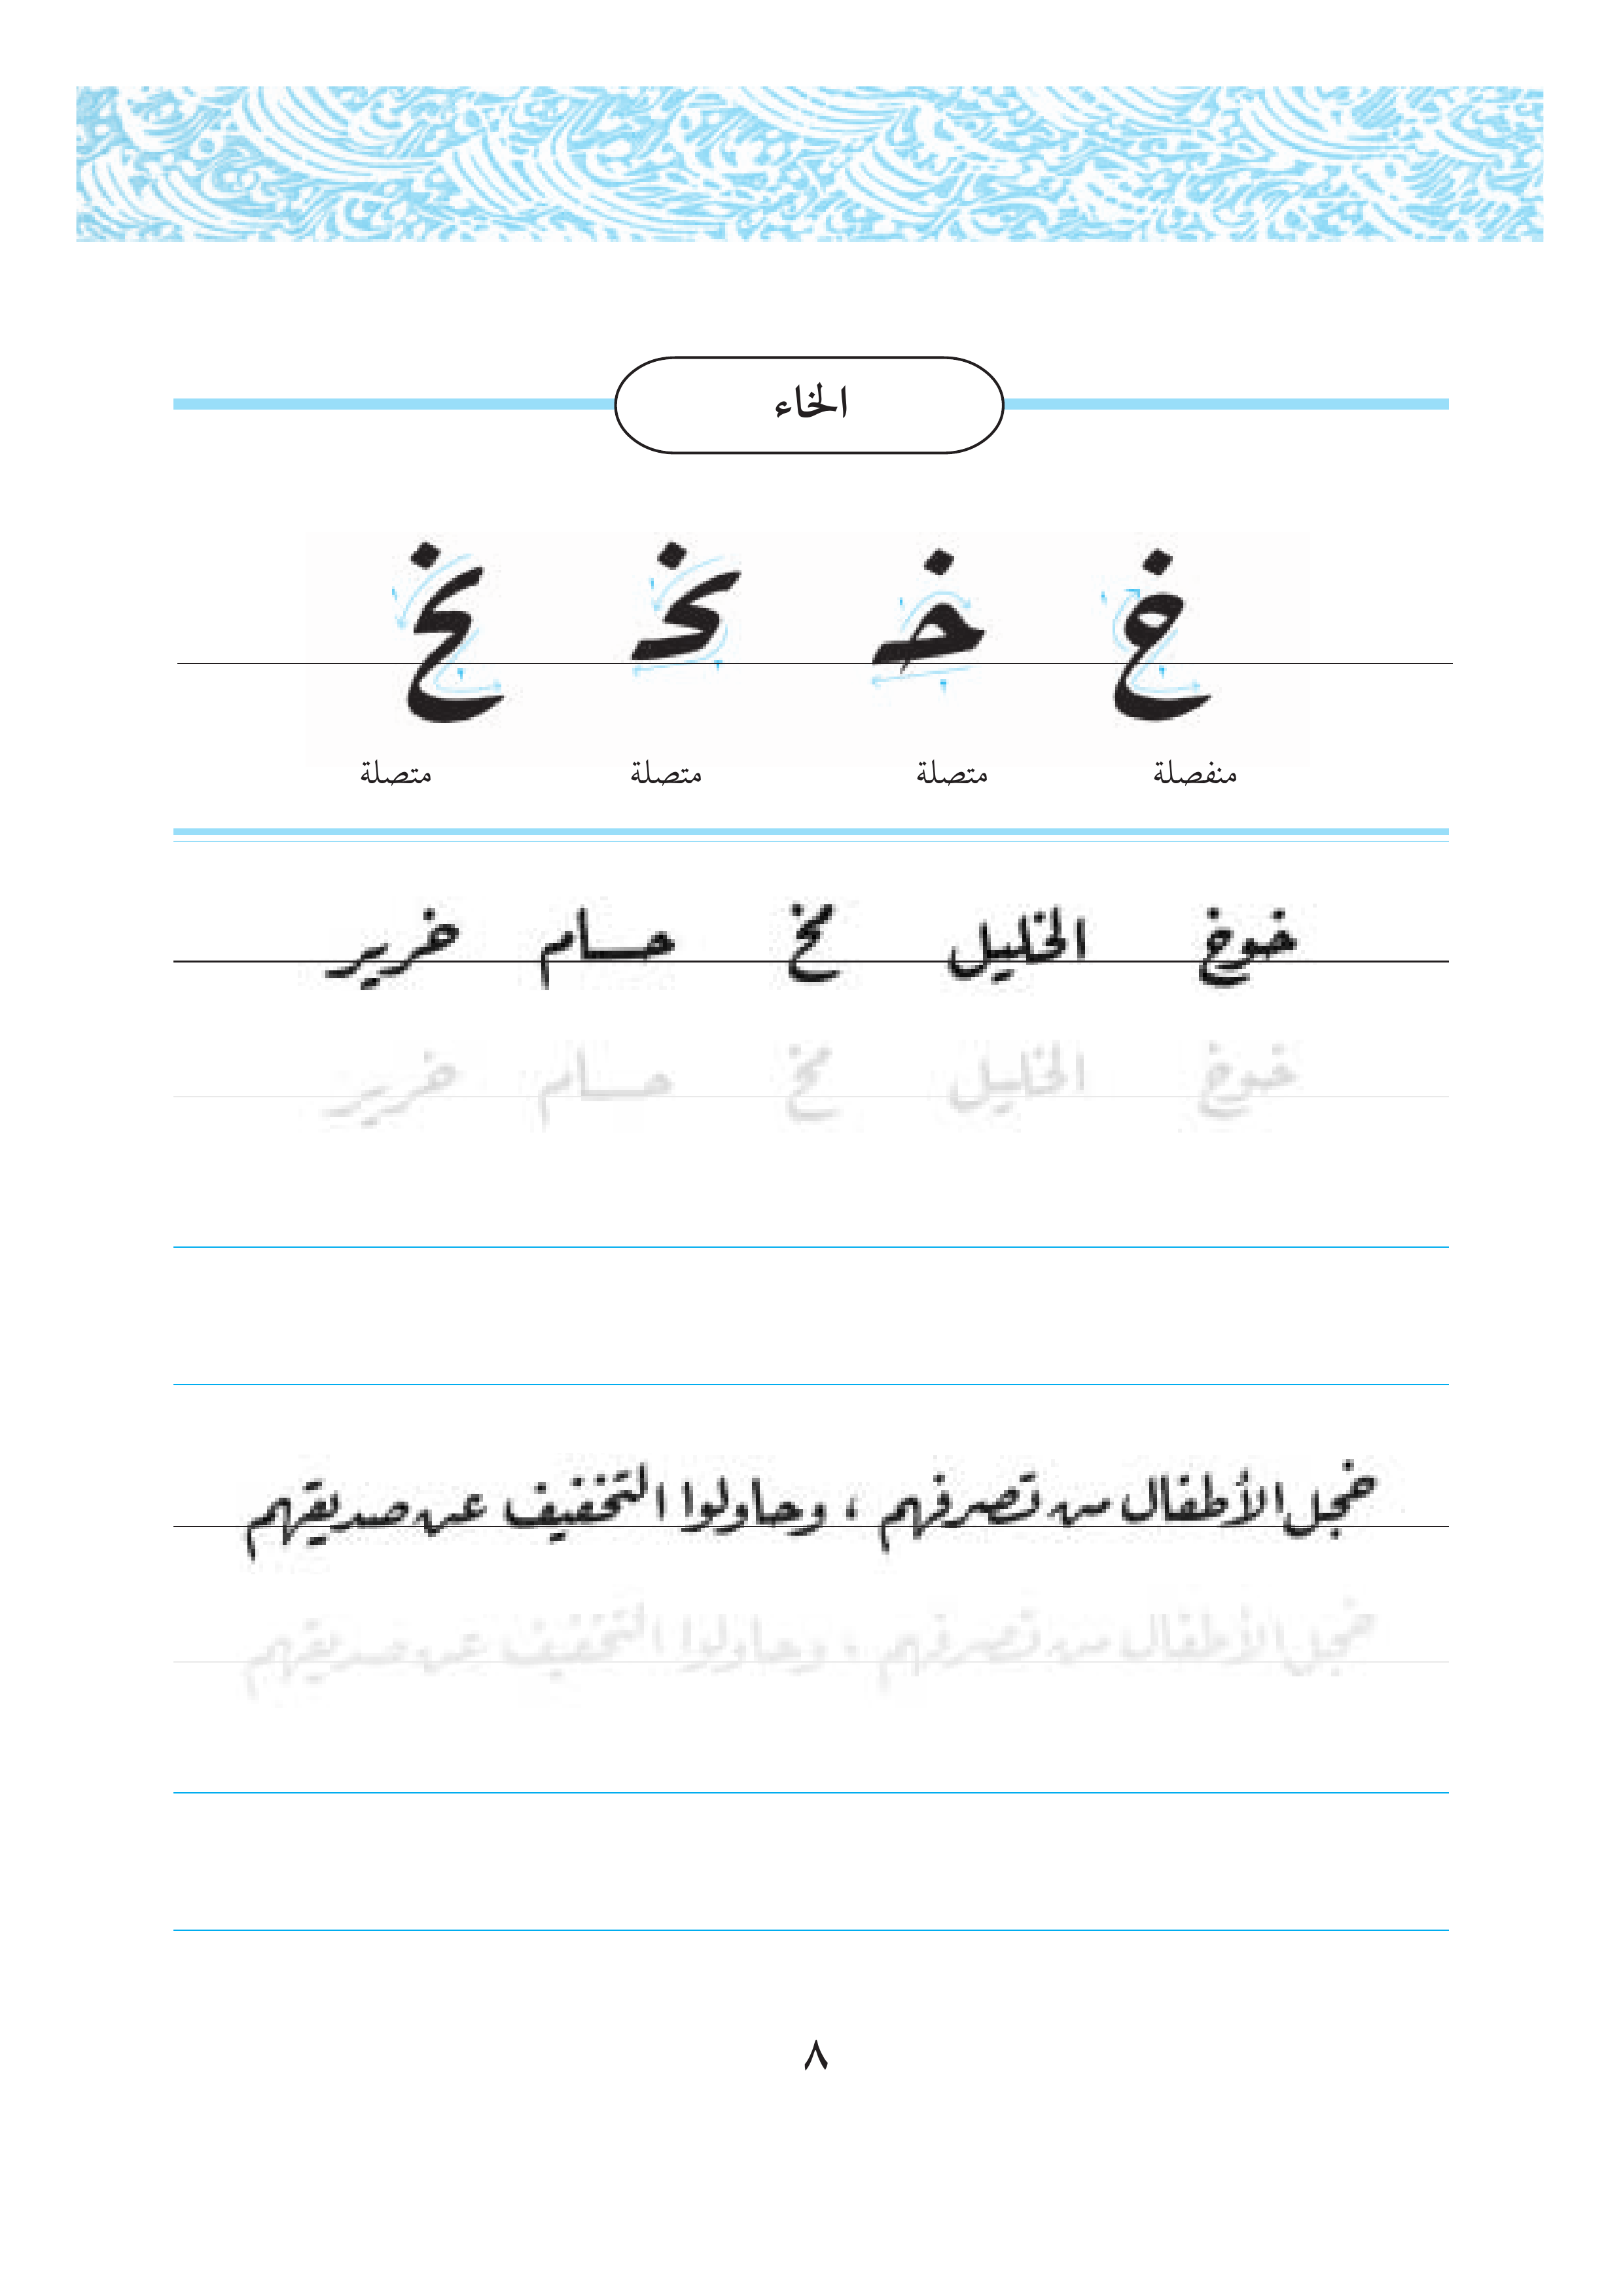 الخاء
خ خـ ـخـ ـخ
منفصلة متصلة متصلة متصلة
خوخ الخليل مخ حـــام خرير
خوخ الخليل مخ حـــام خرير
خجل الأطفال من تصرفهم ، وحاولوا التخفيف عن صديقهم
خجل الأطفال من تصرفهم ، وحاولوا التخفيف عن صديقهم
٨